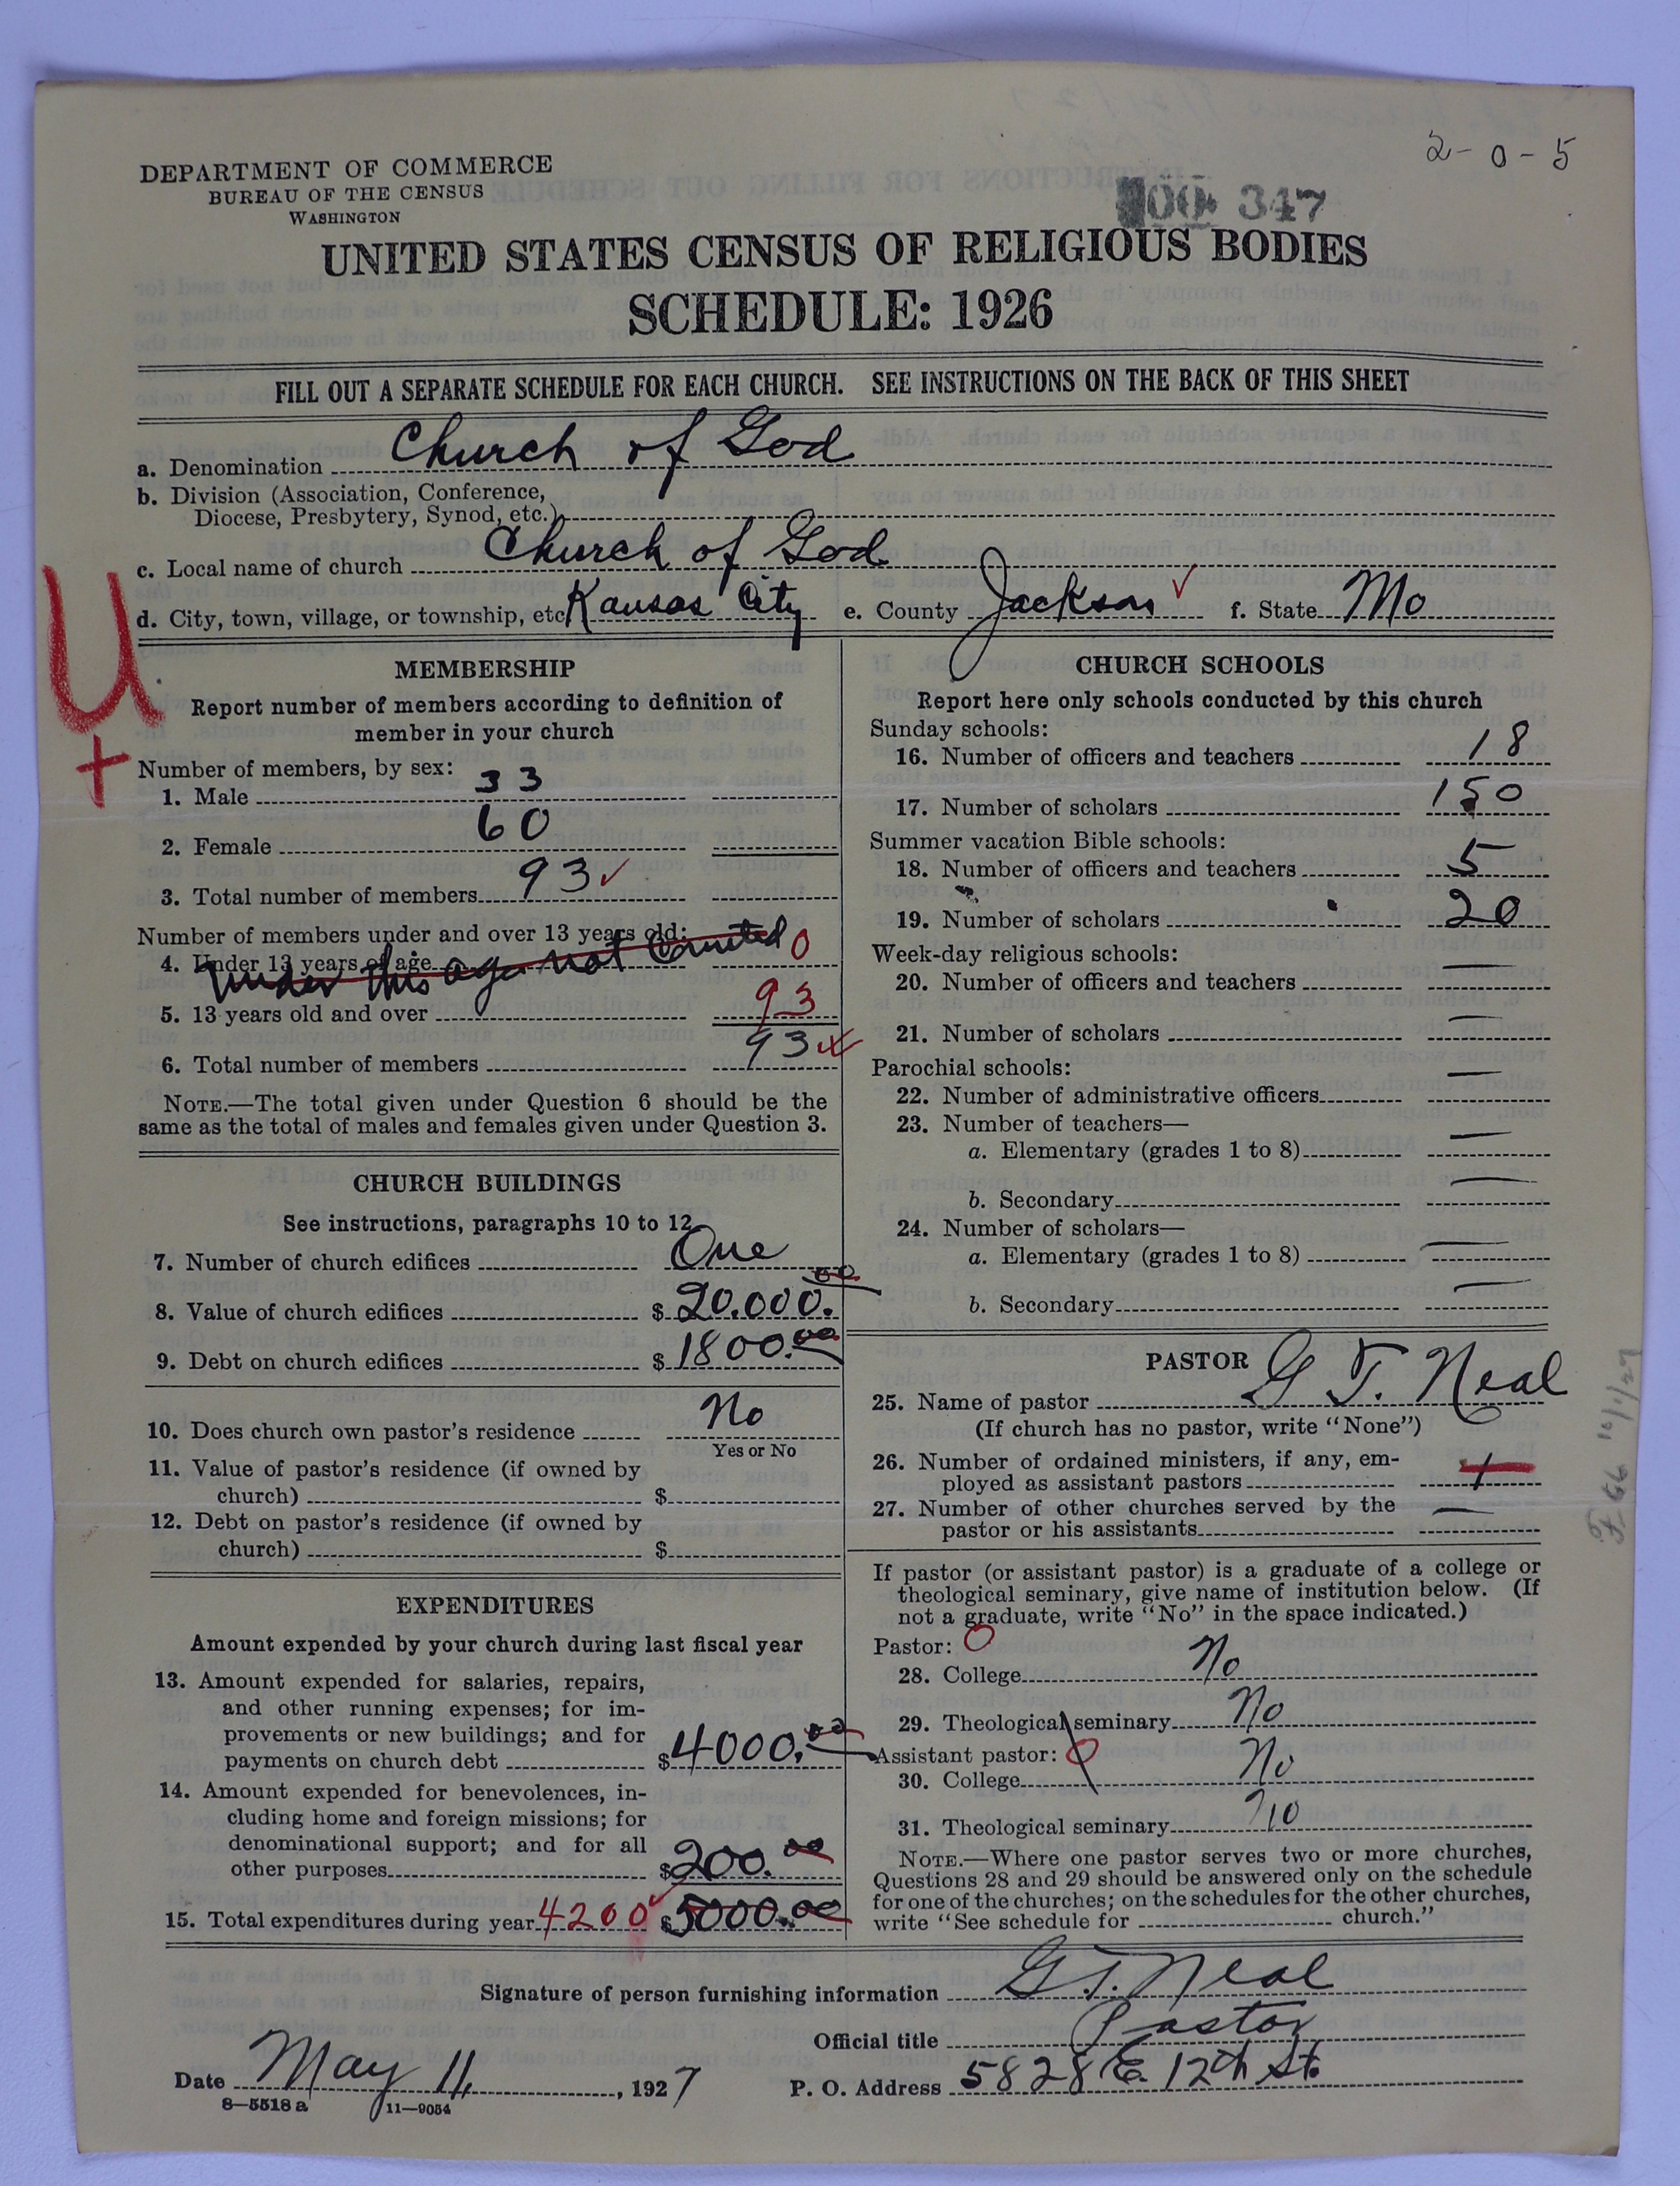 2-0-5
00 347
DEPARTMENT OF COMMERCE
BUREAU OF THE CENSUS
WASHINGTON
UNITED STATES CENSUS OF RELIGIOUS BODIES
SCHEDULE: 1926
FILL OUT A SEPARATE SCHEDULE FOR EACH CHURCH. SEE INSTRUCTIONS ON THE BACK OF THIS SHEET
a. Denomination Church of God
b. Division (Association, Conference,
Diocese, Presbytery, Synod, etc.)
c. Local name of church Church of God
d. City, town, village, or township, etc. Kansas City e. County Jackson ✓ f. State Mo
U
+
MEMBERSHIP
Report number of members according to definition of
member in your church
Number of members, by sex:
1. Male 33
2. Female 60
3. Total number of members 93 ✓
Number of members under and over 13 years old:
4. Under 13 years of age Under this age not Counted 0
5. 13 years old and over 93
6. Total number of members 93 ✓
NOTE.—The total given under Question 6 should be the
same as the total of males and females given under Question 3.
CHURCH BUILDINGS
See instructions, paragraphs 10 to 12
7. Number of church edifices One
8. Value of church edifices $ 20.000.00
9. Debt on church edifices $ 1800.00
10. Does church own pastor's residence No
Yes or No
11. Value of pastor's residence (if owned by
church) $
12. Debt on pastor's residence (if owned by
church) $
EXPENDITURES
Amount expended by your church during last fiscal year
13. Amount expended for salaries, repairs,
and other running expenses; for im-
provements or new buildings; and for
payments on church debt $ 4000.00
14. Amount expended for benevolences, in-
cluding home and foreign missions; for
denominational support; and for all
other purposes $ 200.00
15. Total expenditures during year 4200 ✓ $ 5000.00
CHURCH SCHOOLS
Report here only schools conducted by this church
Sunday schools:
16. Number of officers and teachers 18
17. Number of scholars 150
Summer vacation Bible schools:
18. Number of officers and teachers 5
19. Number of scholars 20
Week-day religious schools:
20. Number of officers and teachers —
21. Number of scholars —
Parochial schools:
22. Number of administrative officers —
23. Number of teachers—
a. Elementary (grades 1 to 8) —
b. Secondary —
24. Number of scholars—
a. Elementary (grades 1 to 8) —
b. Secondary —
PASTOR
25. Name of pastor G T. Neal
(If church has no pastor, write "None")
26. Number of ordained ministers, if any, em-
ployed as assistant pastors 1
27. Number of other churches served by the
pastor or his assistants —
If pastor (or assistant pastor) is a graduate of a college or
theological seminary, give name of institution below. (If
not a graduate, write "No" in the space indicated.)
Pastor: 0
28. College No
29. Theological seminary No
Assistant pastor: 0
30. College No
31. Theological seminary No
NOTE.—Where one pastor serves two or more churches,
Questions 28 and 29 should be answered only on the schedule
for one of the churches; on the schedules for the other churches,
write "See schedule for church."
Signature of person furnishing information G. T. Neal
Official title Pastor
Date May 11, 1927 P. O. Address 5828 E. 12th St.
8—5518 a 11—9054